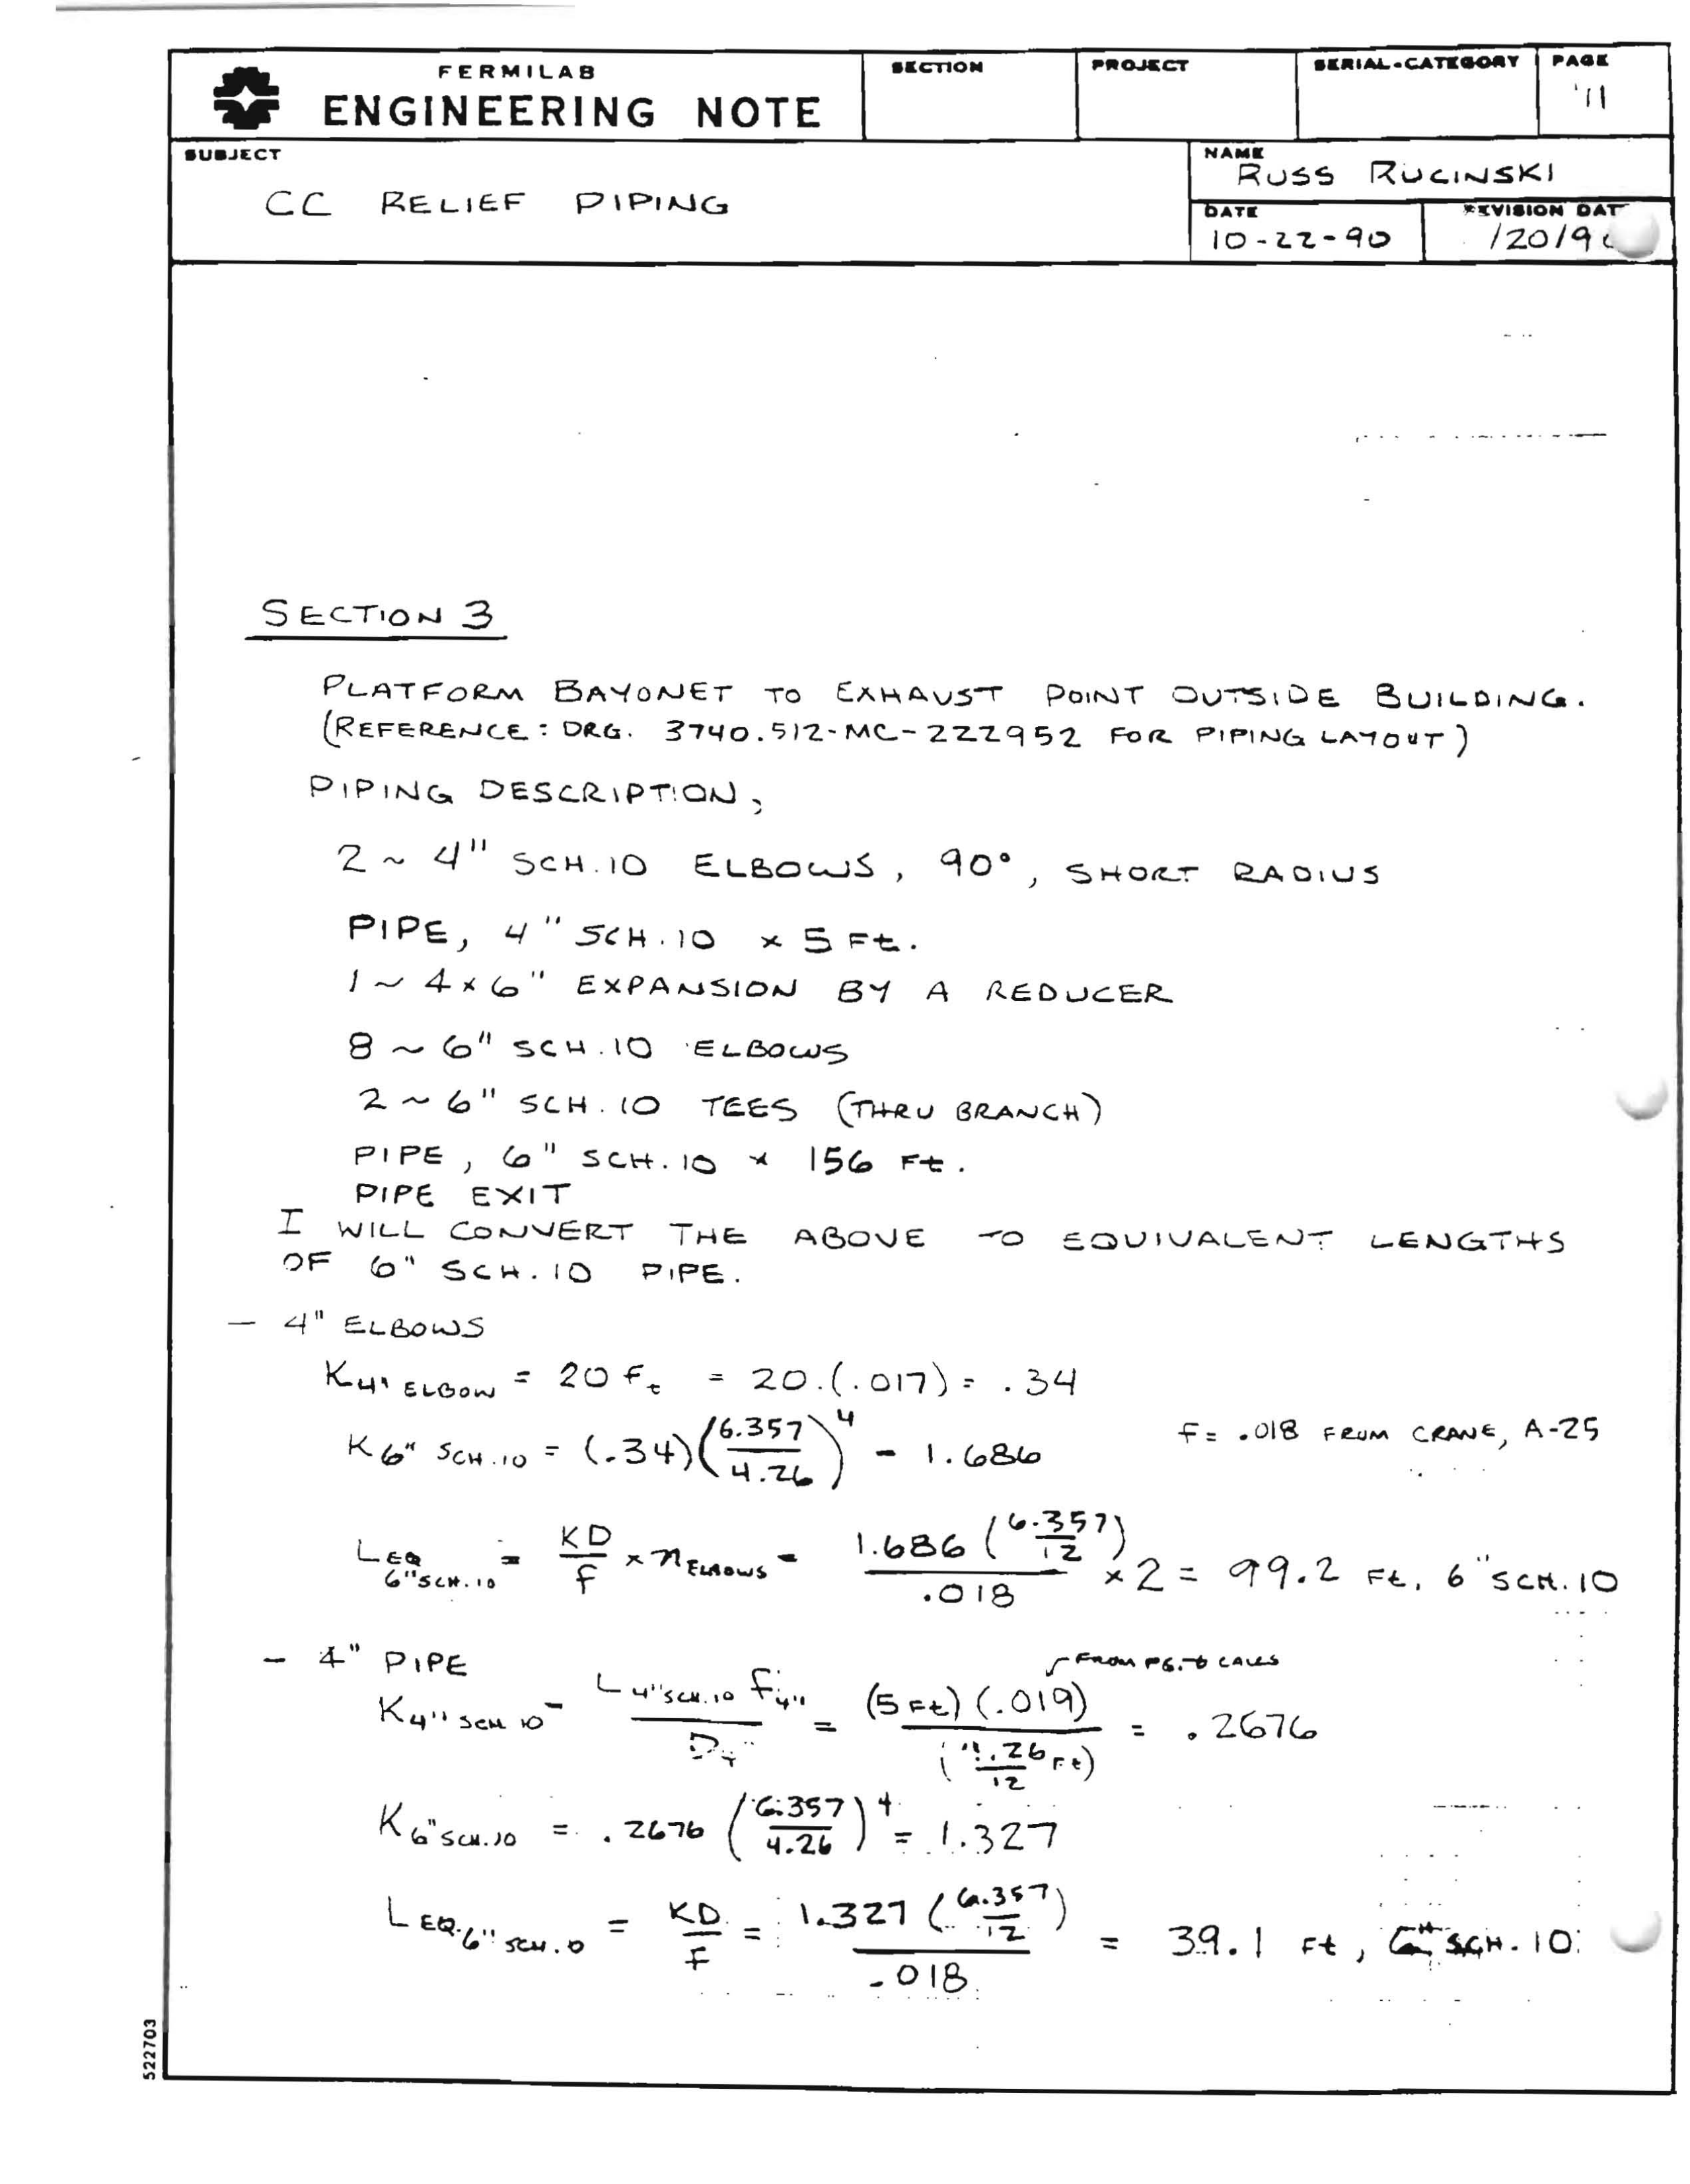 FERMILAB
ENGINEERING NOTE
SECTION
PROJECT
SERIAL-CATEGORY
PAGE
11
SUBJECT
CC RELIEF PIPING
NAME
RUSS RUCINSKI
DATE
10-22-90
REVISION DAT
/20/9
SECTION 3
PLATFORM BAYONET TO EXHAUST POINT OUTSIDE BUILDING.
(REFERENCE: DRG. 3740.512-MC-222952 FOR PIPING LAYOUT)
PIPING DESCRIPTION;
2 ~ 4" SCH.10 ELBOWS, 90°, SHORT RADIUS
PIPE, 4" SCH.10 x 5 Ft.
1 ~ 4x6" EXPANSION BY A REDUCER
8 ~ 6" SCH.10 ELBOWS
2 ~ 6" SCH.10 TEES (THRU BRANCH)
PIPE, 6" SCH.10 x 156 Ft.
PIPE EXIT
I WILL CONVERT THE ABOVE TO EQUIVALENT LENGTHS
OF 6" SCH.10 PIPE.
- 4" ELBOWS
K4" ELBOW = 20 ft = 20.(.017) = .34
K6" SCH.10 = (.34)(6.357/4.26)^4 = 1.686 f = .018 FROM CRANE, A-25
LEQ 6"SCH.10 = KD/f x nELBOWS = 1.686 (6.357/12)/.018 x 2 = 99.2 Ft. 6" SCH.10
- 4" PIPE
FROM PG. CALCS
K4" SCH 10 = L4"SCH.10 f4"/D4" = (5 Ft)(.019)/(4.26/12 Ft) = .2676
K6"SCH.10 = .2676 (6.357/4.26)^4 = 1.327
LEQ.6" SCH.10 = KD/f = 1.327 (6.357/12)/.018 = 39.1 Ft, 6" SCH.10
522703